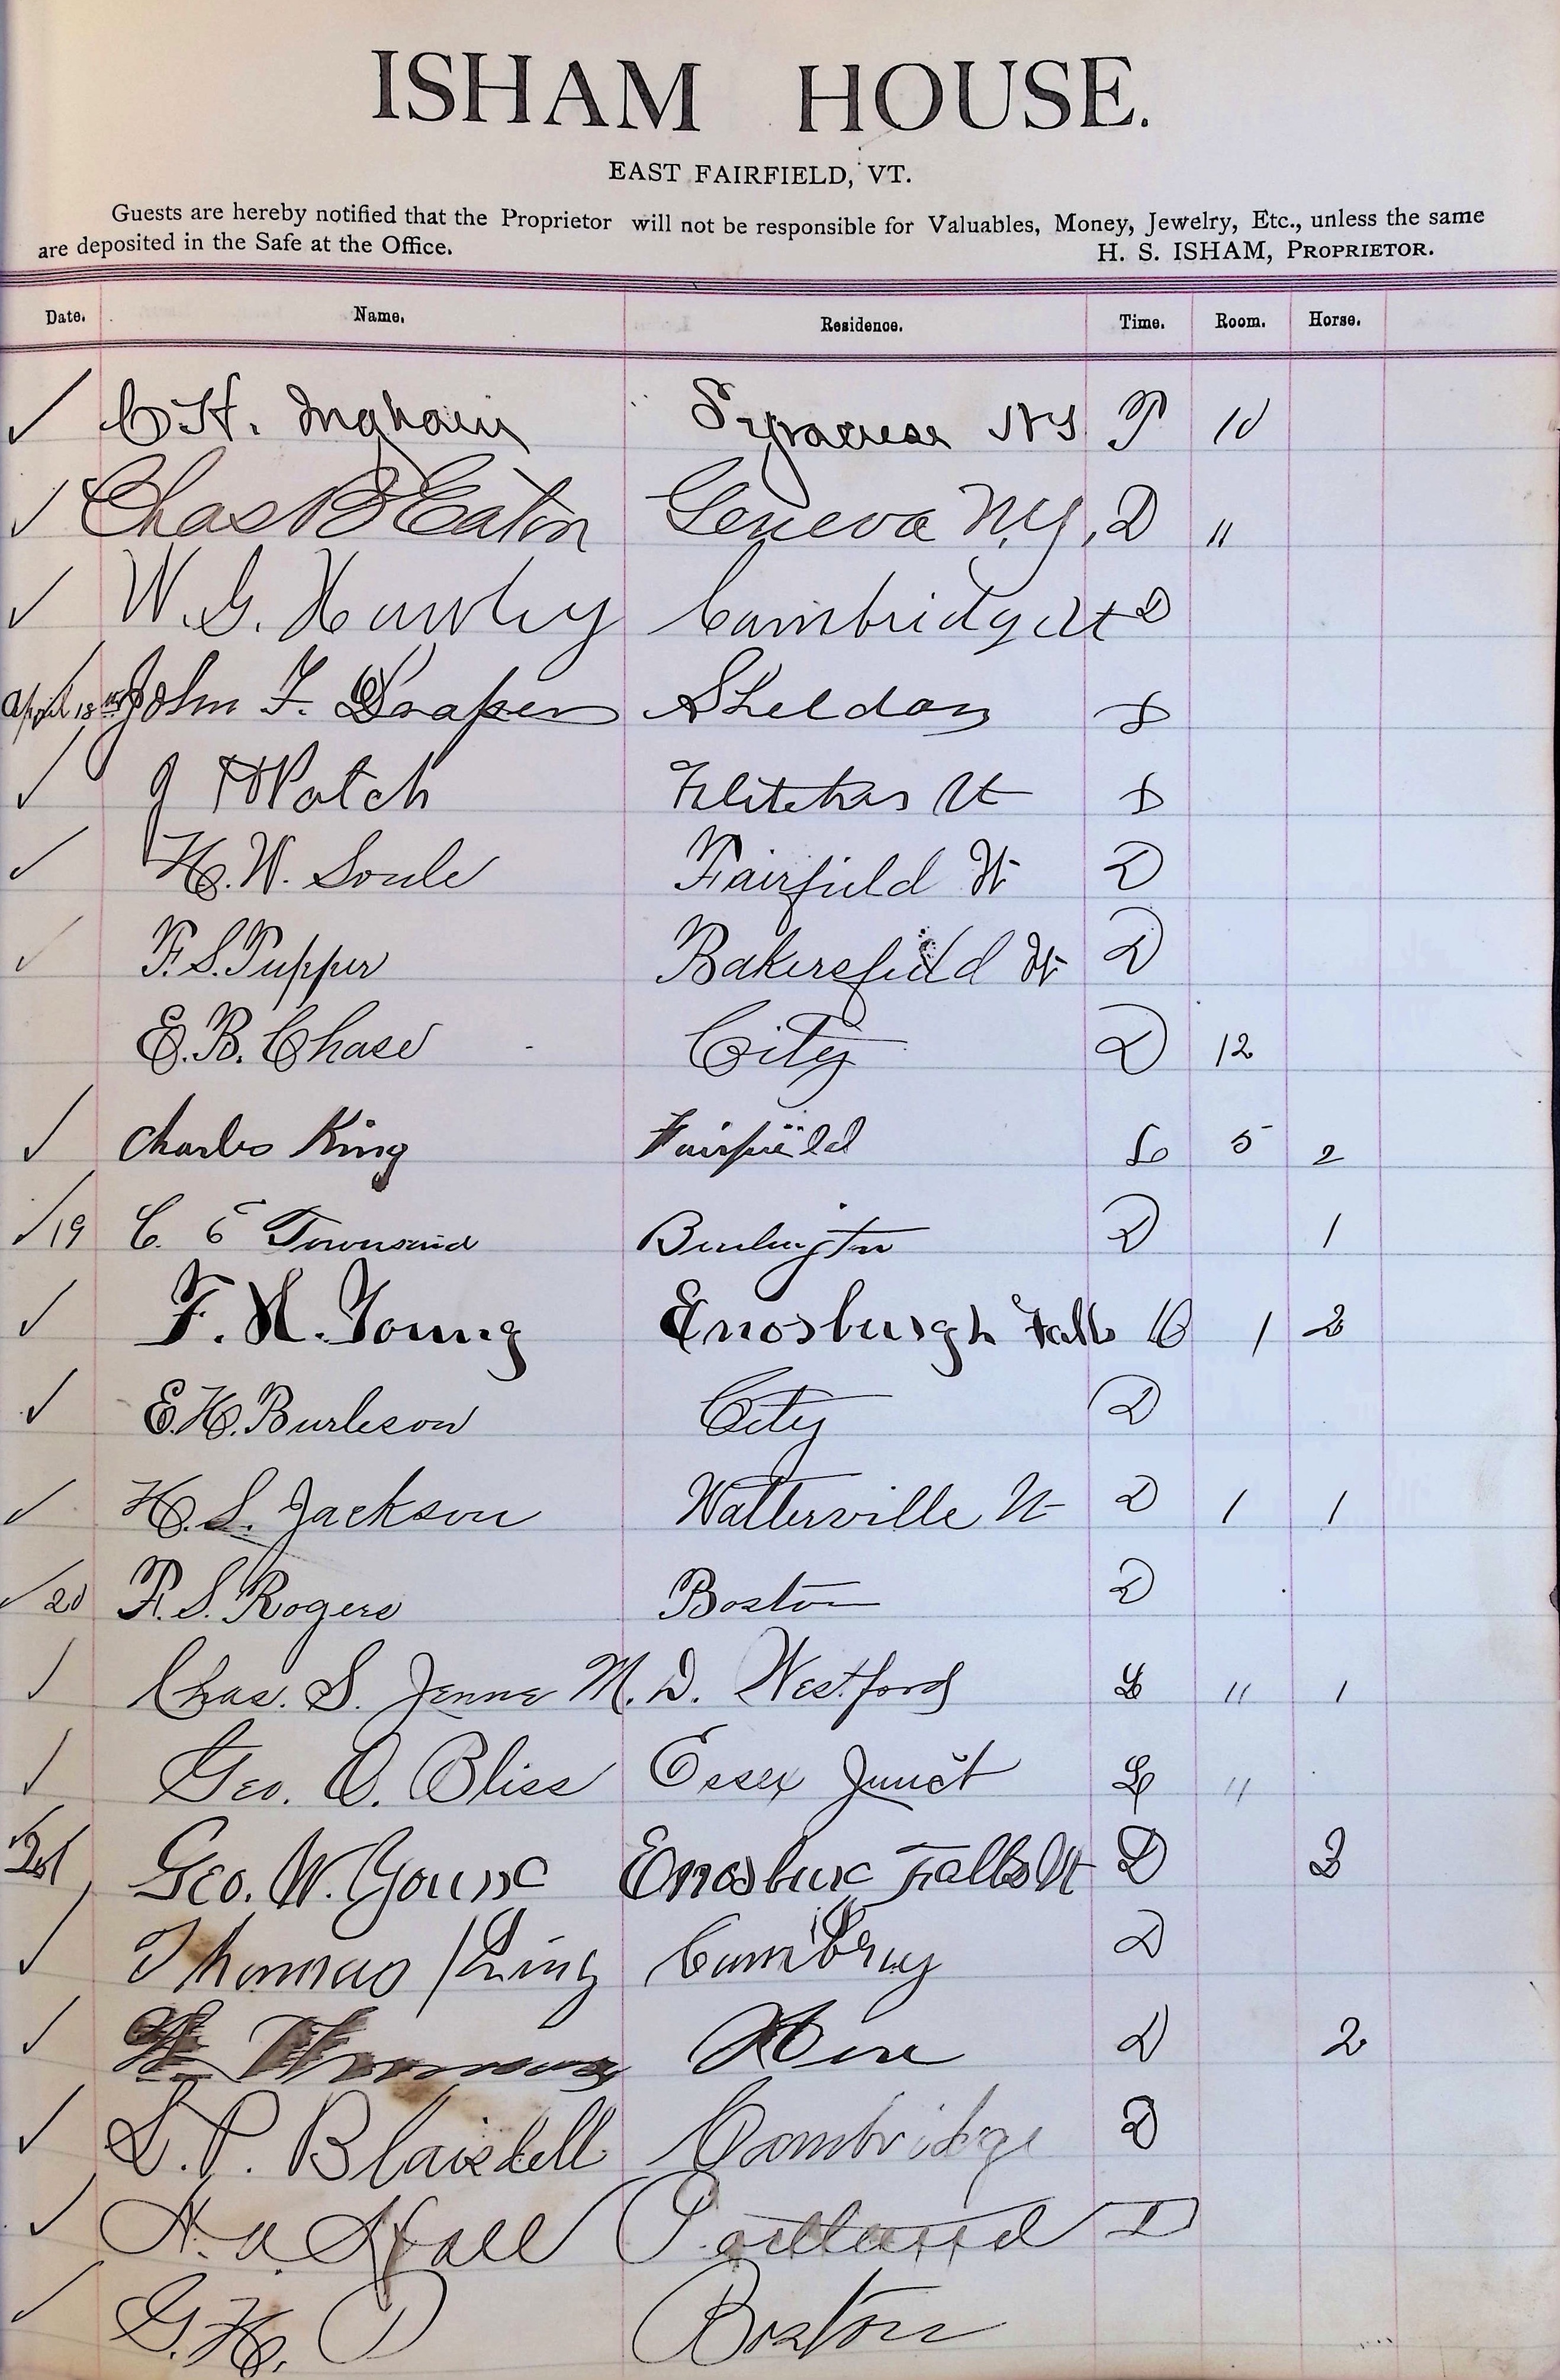 ISHAM HOUSE.
EAST FAIRFIELD, VT.
Guests are hereby notified that the Proprietor will not be responsible for Valuables, Money, Jewelry, Etc., unless the same
are deposited in the Safe at the Office. H. S. ISHAM, PROPRIETOR.
Date. Name. Residence. Time. Room. Horse.
✓ C H. Ingham Syracuse NY 10
✓ Chas B Eaton Geneva N.Y, D "
✓ W. G. Hawley Cambridge Vt D
April 18 John F. Draper Sheldon D
✓ J H Patch Fletcher Vt D
✓ H. W. Soule Fairfield Vt D
✓ F. S. Tupper Bakersfield Vt D
E. B. Chase City D 12
✓ Charles King Fairfield Lo 5 2
✓ 19 C. E Townsend Burlington D 1
✓ F. H. Young Enosburgh Falls 1 2
✓ E. H. Burleson City D
✓ H. S. Jackson Watterville Vt D 1 1
✓ 20 F. S. Rogers Boston D
✓ Chas. S. Jenne M. D. Westford " 1
✓ Geo. O. Bliss Essex Junct "
✓ 21 Geo. W. Young Enosburg Falls Vt D 2
✓ Thomas King D
✓ Thomas D 2
✓ S. P. Blaisdell Cambridge D
✓ H. a Hall Portland D
✓ G. H. Boston